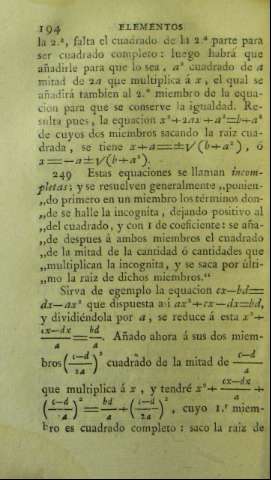 194 ELEMENTOS
la 2.ª, falta el cuadrado de la 2.ª parte para
ser cuadrado completo: luego habrá que
añadirle para que lo sea, a² cuadrado de a
mitad de 2a que multiplica á x, el qual se
añadirá tambien al 2.º miembro de la equa-
cion para que se conserve la igualdad. Re-
sulta pues, la equacion x²+2ax+a²=b+a²
de cuyos dos miembros sacando la raiz cua-
drada, se tiene x+a=±√(b+a²), ó
x=-a±√(b+a²).
249 Estas equaciones se llaman incom-
pletas; y se resuelven generalmente „ponien-
„do primero en un miembro los términos don-
„de se halle la incognita, dejando positivo al
„del cuadrado, y con 1 de coeficiente: se aña-
„de despues á ambos miembros el cuadrado
„de la mitad de la cantidad ó cantidades que
„multiplican la incognita, y se saca por últi-
„mo la raiz de dichos miembros.“
Sirva de egemplo la equacion cx-bd=
dx-ax² que dispuesta así ax²+cx-dx=bd,
y dividiéndola por a, se reduce á esta x²+
(cx-dx)/a = bd/a. Añado ahora á sus dos miem-
bros ((c-d)/2a)² cuadrado de la mitad de (c-d)/a
que multiplica á x, y tendré x²+ (cx-dx)/a +
((c-d)/2a)² = bd/a + ((c-d)/2a)², cuyo 1.r miem-
bro es cuadrado completo: saco la raiz de